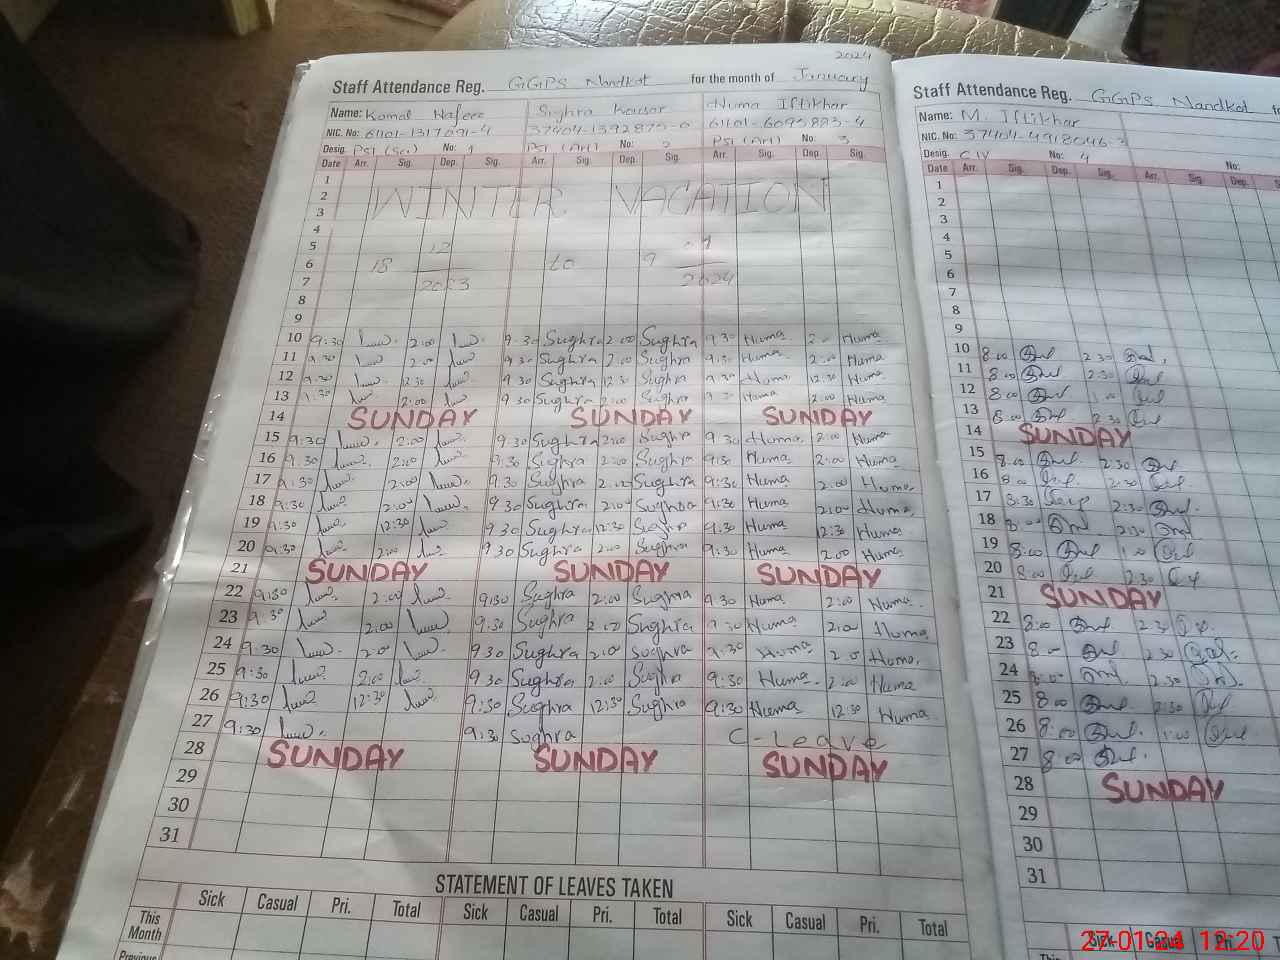 2024
Staff Attendance Reg. GGPS Nandkot for the month of January
Name: Komal Nafees Sughra Kousar Huma Iftikhar
NIC. No: 61101-1317091-4 37404-1392875-0 61101-6095883-4
Desig. PST (Sci) No: 1 PST (Art) No: 2 PST (Art) No: 3
Date Arr. Sig. Dep. Sig. Arr. Sig. Dep. Sig. Arr. Sig. Dep. Sig.
1
2 WINTER VACATION
3
4
5 12 1
6 18 to 9
7 2023 2024
8
9
10 9:30 2:00 9:30 Sughra 2:00 Sughra 9:30 Huma 2:00 Huma
11 9:30 2:00 9:30 Sughra 2:00 Sughra 9:30 Huma 2:00 Huma
12 9:30 2:30 9:30 Sughra 12:30 Sughra 9:30 Huma 12:30 Huma
13 9:30 2:00 9:30 Sughra 2:00 Sughra 9:30 Huma 2:00 Huma
14 SUNDAY SUNDAY SUNDAY
15 9:30 2:00 9:30 Sughra 2:00 Sughra 9:30 Huma 2:00 Huma
16 9:30 2:00 9:30 Sughra 2:00 Sughra 9:30 Huma 2:00 Huma
17 9:30 2:00 9:30 Sughra 2:00 Sughra 9:30 Huma 2:00 Huma
18 9:30 2:00 9:30 Sughra 2:00 Sughra 9:30 Huma 2:00 Huma
19 9:30 12:30 9:30 Sughra 12:30 Sughra 9:30 Huma 2:30 Huma
20 9:30 2:00 9:30 Sughra 2:00 Sughra 9:30 Huma 2:00 Huma
21 SUNDAY SUNDAY SUNDAY
22 9:30 2:00 9:30 Sughra 2:00 Sughra 9:30 Huma 2:00 Huma
23 9:30 2:00 9:30 Sughra 2:00 Sughra 9:30 Huma 2:00 Huma
24 9:30 2:00 9:30 Sughra 2:00 Sughra 9:30 Huma 2:0 Huma
25 9:30 2:00 9:30 Sughra 2:00 Sughra 9:30 Huma 2:00 Huma
26 9:30 12:30 9:30 Sughra 12:30 Sughra 9:30 Huma 12:30 Huma
27 9:30 9:30 Sughra C-Leave
28 SUNDAY SUNDAY SUNDAY
29
30
31
STATEMENT OF LEAVES TAKEN
Sick Casual Pri. Total Sick Casual Pri. Total Sick Casual Pri. Total
This Month
Previous
Staff Attendance Reg. GGPS Nandkot
Name: M. Iftikhar
NIC. No: 37404-4918046-3
Desig. C IV No: 4 No:
Date Arr. Sig. Dep. Sig. Arr. Sig. Dep.
1
2
3
4
5
6
7
8
9
10 8:00 2:30
11 8:00 2:30
12 8:00 1:00
13 8:00 2:30
14 SUNDAY
15 8:00 2:30
16 8:00 2:30
17 8:30 2:30
18 8:00 2:30
19 8:00 1:00
20 8:00 2:30
21 SUNDAY
22 8:00 2:30
23 8:00 2:30
24 8:00 2:30
25 8:00 2:30
26 8:00 1:00
27 8:00
28 SUNDAY
29
30
31
Sick Casual Pri.
This
27-01-24 12:20